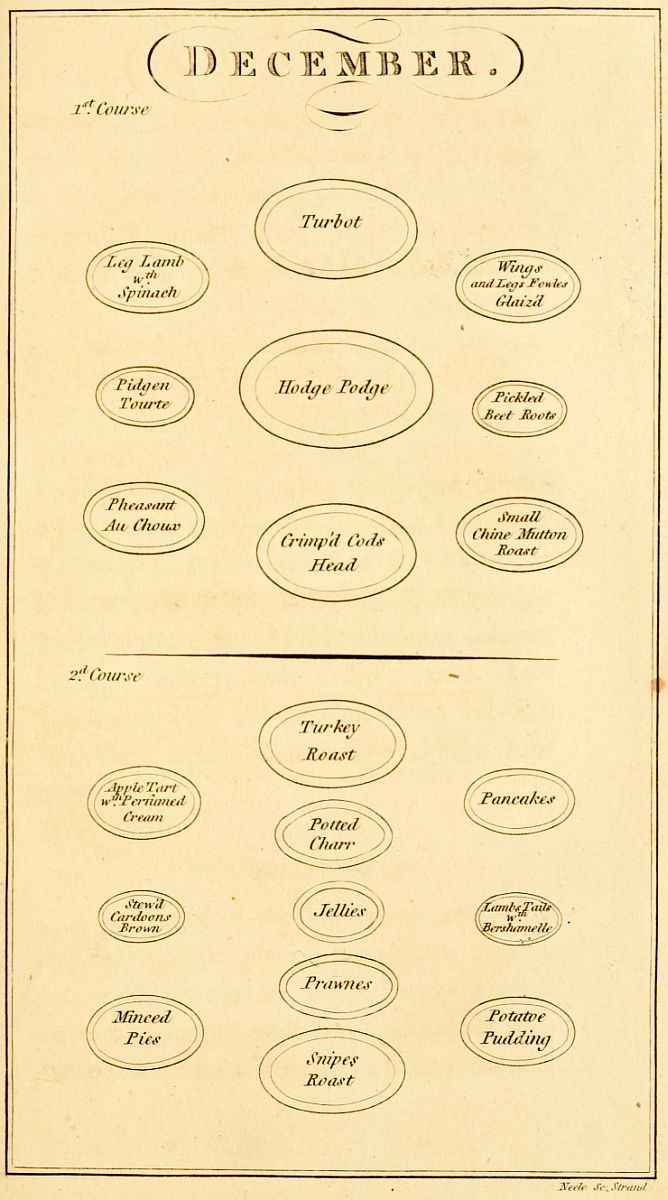 DECEMBER.
1st. Course
Turbot
Leg Lamb
wth.
Spinach
Wings
and Legs Fowles
Glaiz'd
Pidgen
Tourte
Hodge Podge
Pickled
Beet Roots
Pheasant
Au Choux
Crimp'd Cods
Head
Small
Chine Mutton
Roast
2d. Course
Turkey
Roast
Apple Tart
wth. Perfumed
Cream
Pancakes
Potted
Charr
Stew'd
Cardoons
Brown
Jellies
Lambs Tails
wth.
Bershamelle
Prawnes
Minced
Pies
Potatoe
Pudding
Snipes
Roast
Neele Sc. Strand